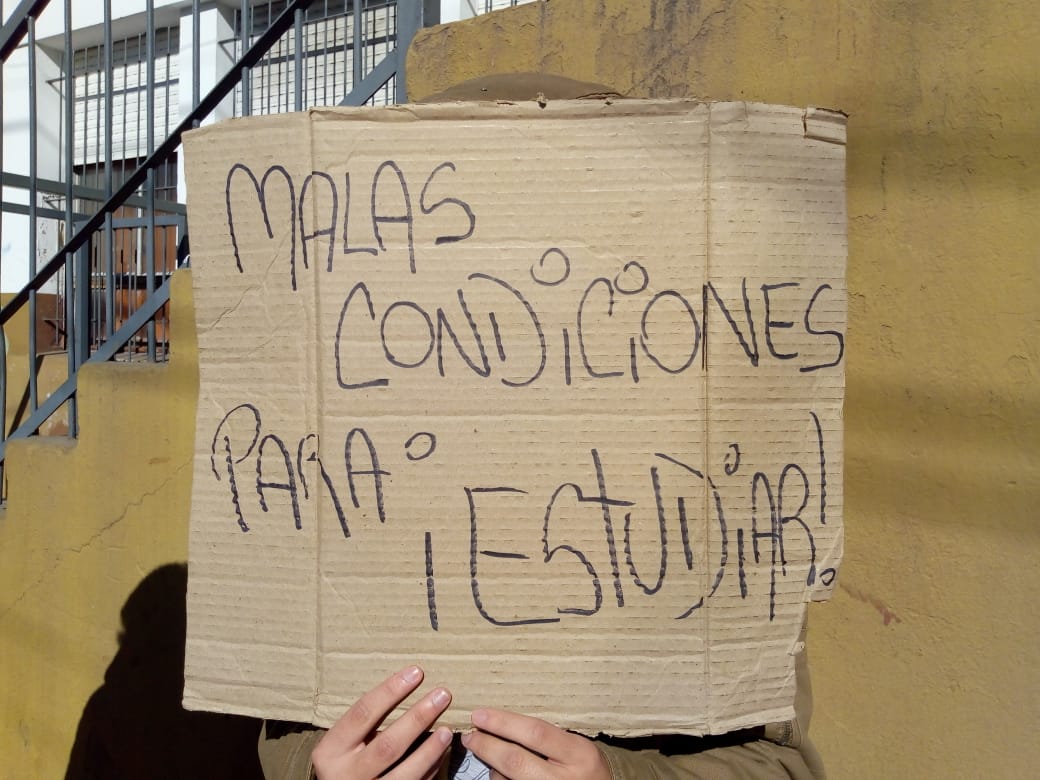 MALAS
CONDiCiONES
PARA
¡ESTUDiAR!